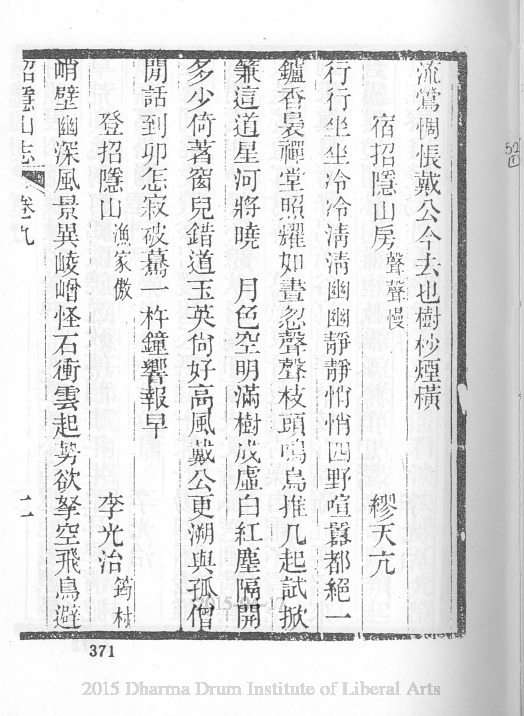 流鶯惆悵戴公今去也樹杪煙橫
宿招隱山房 聲聲慢 繆天亢
行行坐坐冷冷淸淸幽幽靜靜悄悄四野喧囂都絕一
鑪香裊禪堂照耀如晝忽聲聲枝頭鳴鳥推几起試掀
簾這道星河將曉 月色空明滿樹成虛白紅塵隔開
多少倚著窗兒錯道玉英尙好高風戴公更溯與孤僧
閒話到卯怎寂破驀一杵鐘響報早
登招隱山 漁家傲 李光治 筠村
峭壁幽深風景異崚嶒怪石衝雲起勢欲拏空飛鳥避
招隱山志 卷九 十一
371
2015 Dharma Drum Institute of Liberal Arts